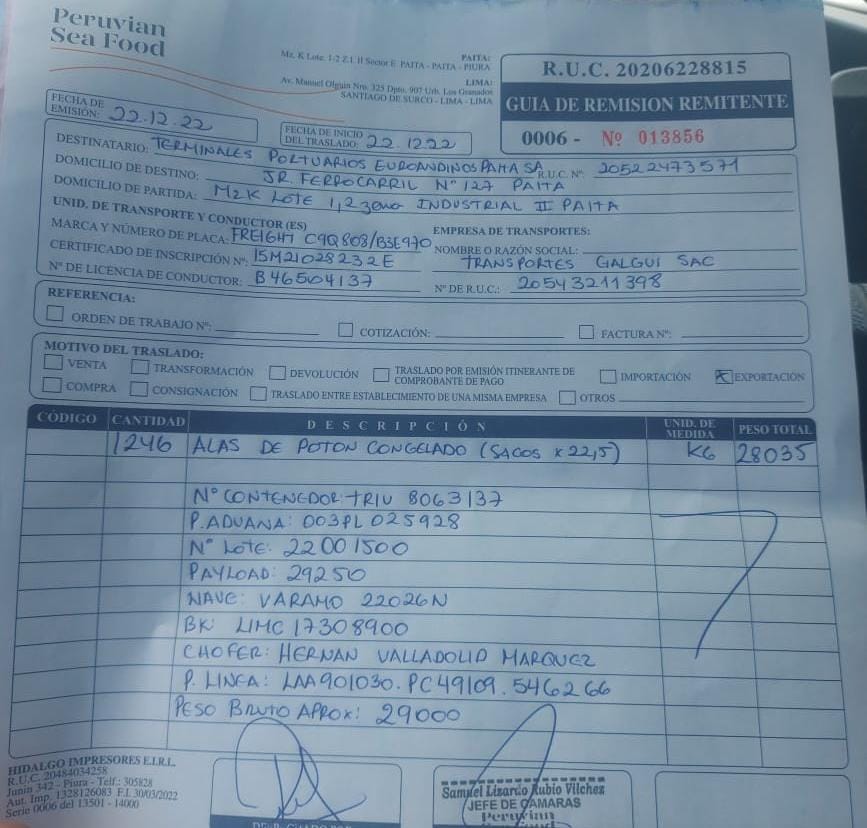 Peruvian
Sea Food
PAITA:
Mz. K Lote. 1-2 Z.I. II Sector E PAITA - PAITA - PIURA
LIMA:
Av. Manuel Olguin Nro. 325 Dpto. 907 Urb. Los Granados
SANTIAGO DE SURCO - LIMA - LIMA
R.U.C. 20206228815
GUIA DE REMISION REMITENTE
0006 - Nº 013856
FECHA DE EMISIÓN: 22.12.22
FECHA DE INICIO DEL TRASLADO: 22.12.22
DESTINATARIO: TERMINALES PORTUARIOS EUROANDINOS PAITA SA R.U.C. Nº 20522473571
DOMICILIO DE DESTINO: JR. FERROCARRIL Nº 127 PAITA
DOMICILIO DE PARTIDA: MZK LOTE 1,2 zona INDUSTRIAL II PAITA
UNID. DE TRANSPORTE Y CONDUCTOR (ES)
EMPRESA DE TRANSPORTES:
MARCA Y NÚMERO DE PLACA: FREIGHT C9Q808/B3E970
NOMBRE O RAZÓN SOCIAL: TRANSPORTES GALGUI SAC
CERTIFICADO DE INSCRIPCIÓN Nº: 15M21028232E
Nº DE LICENCIA DE CONDUCTOR: B46504137
Nº DE R.U.C.: 20543211398
REFERENCIA:
ORDEN DE TRABAJO Nº: COTIZACIÓN: FACTURA Nº:
MOTIVO DEL TRASLADO:
VENTA TRANSFORMACIÓN DEVOLUCIÓN TRASLADO POR EMISIÓN ITINERANTE DE COMPROBANTE DE PAGO IMPORTACIÓN X EXPORTACIÓN
COMPRA CONSIGNACIÓN TRASLADO ENTRE ESTABLECIMIENTO DE UNA MISMA EMPRESA OTROS
CÓDIGO CANTIDAD DESCRIPCIÓN UNID. DE MEDIDA PESO TOTAL
1246 ALAS DE POTON CONGELADO (SACOS x 22,5) KG 28035
Nº CONTENEDOR: TRIU 8063137
P. ADUANA: 003PL025928
Nº LOTE: 22001500
PAYLOAD: 29250
NAVE: VARAMO 22026N
BK: LIMC17308900
CHOFER: HERNAN VALLADOLID MARQUEZ
P. LINEA: LAA901030.PC49109.546266
PESO BRUTO APROX: 29000
HIDALGO IMPRESORES E.I.R.L.
R.U.C. 20484034258
Junin 342 - Piura - Telf.: 305828
Aut. Imp. 1328126083 F.I. 30/03/2022
Serie 0006 del 13501 - 14000
Samuel Lizardo Rubio Vilchez
JEFE DE CAMARAS
Peruvian